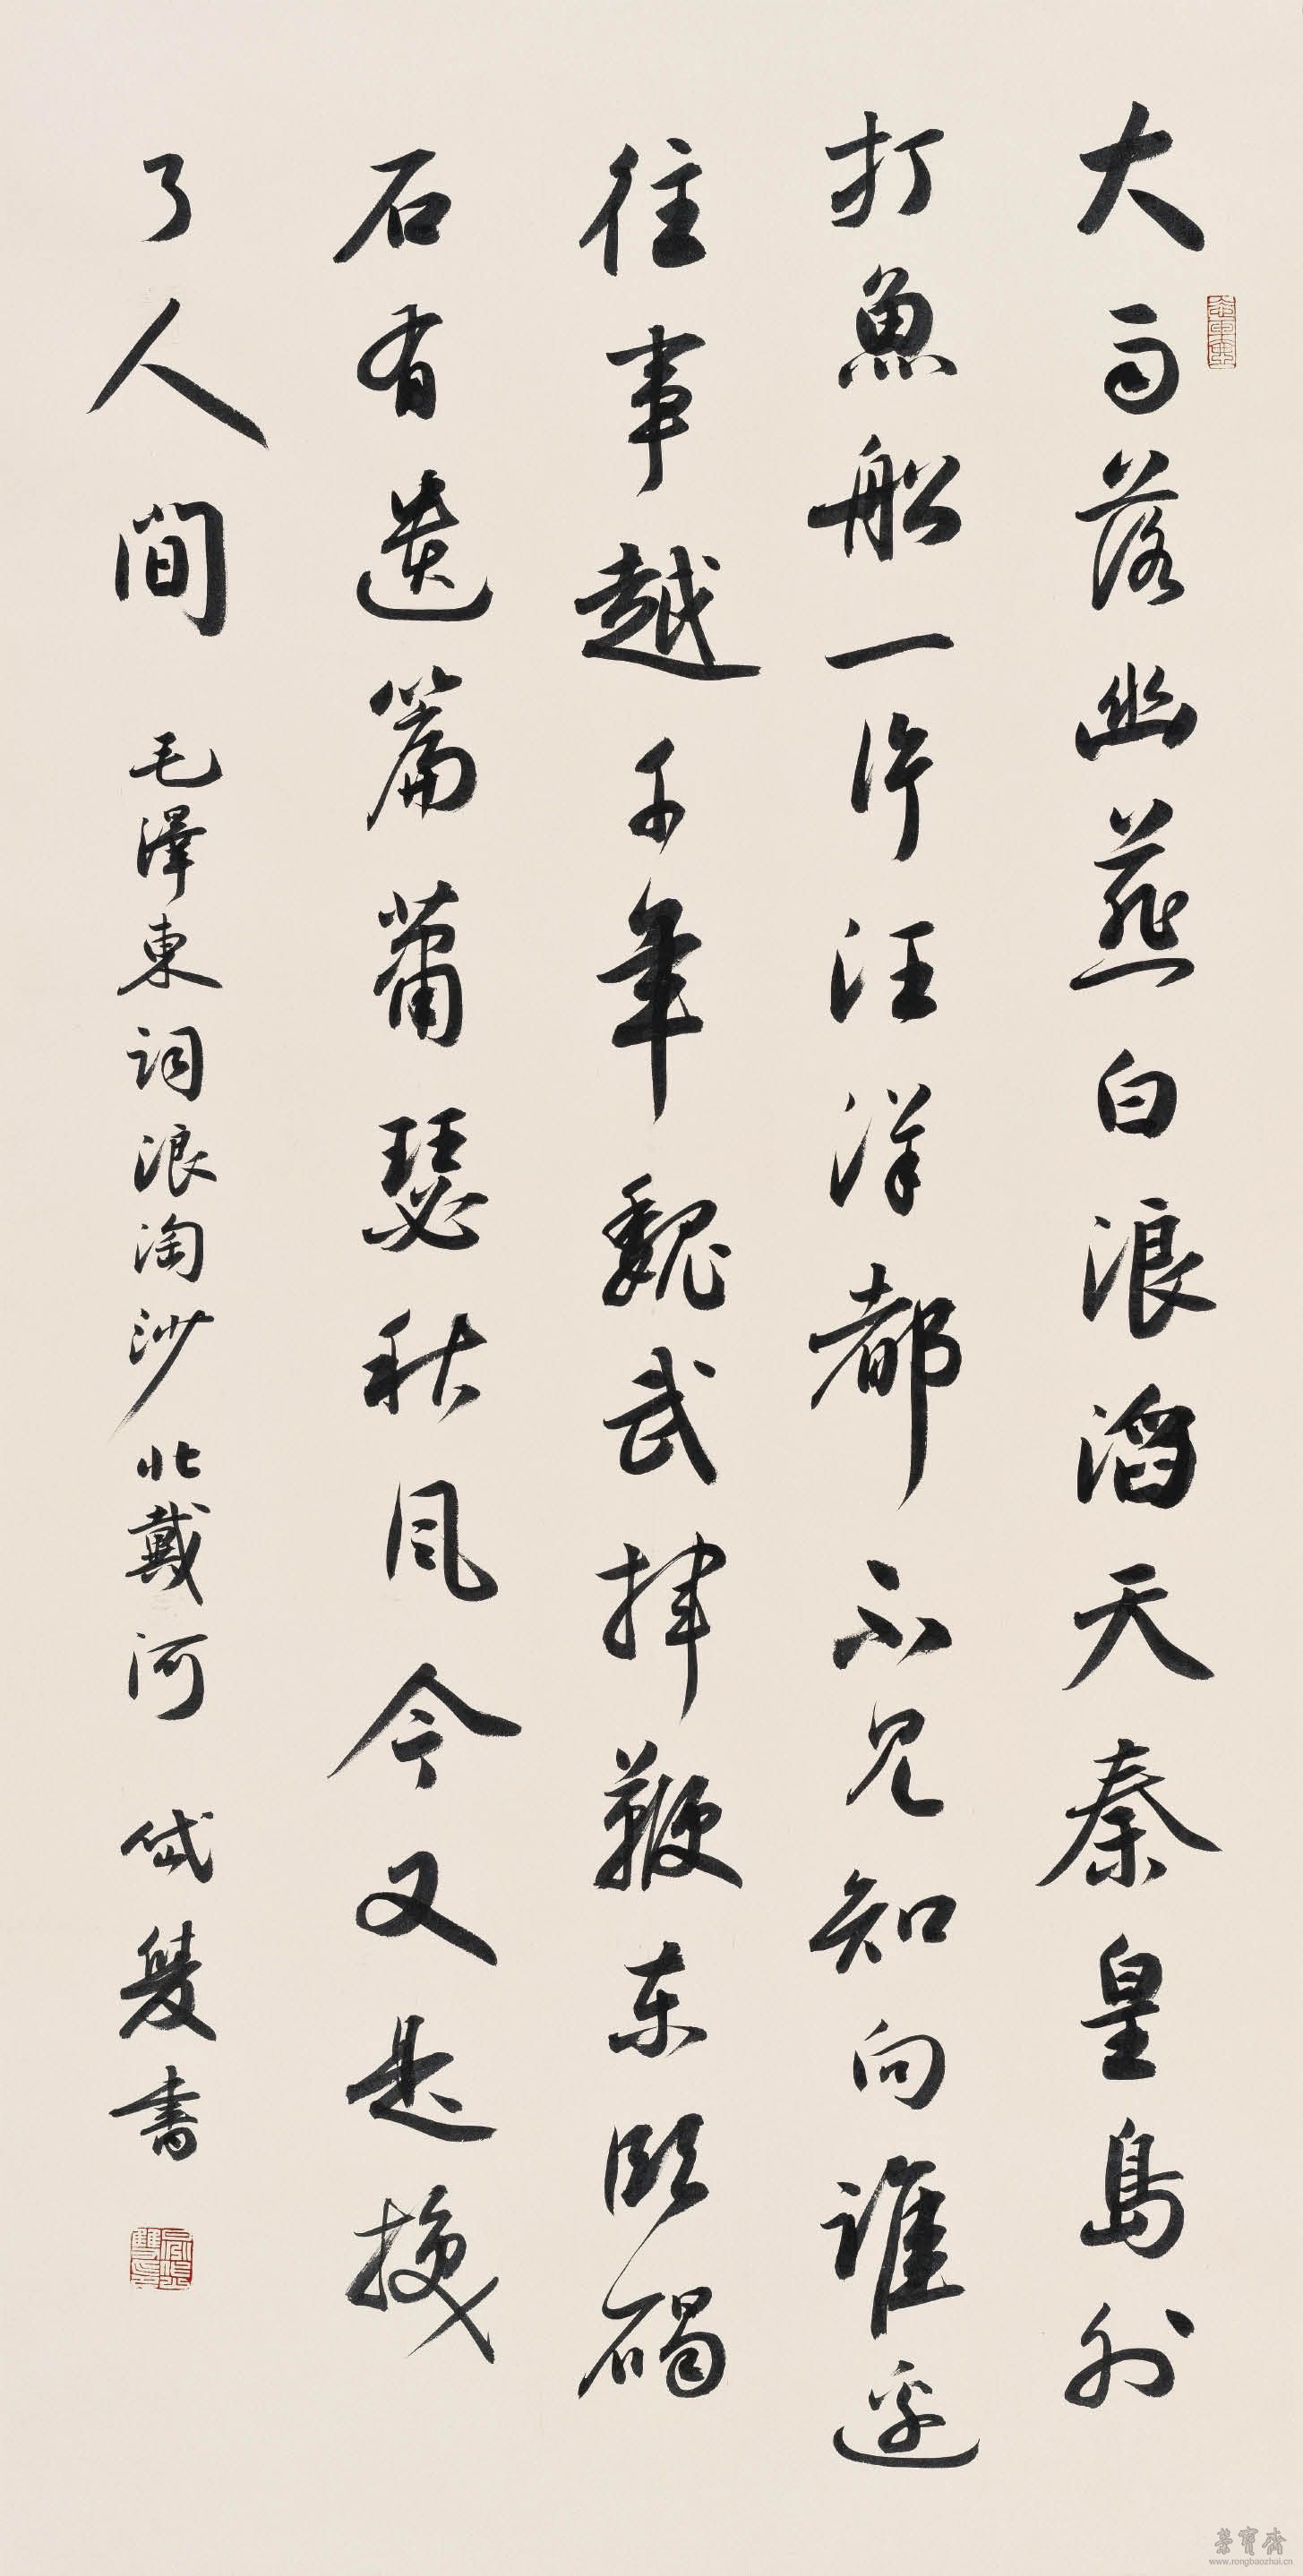 大雨落幽燕白浪滔天秦皇島外
打魚船一片汪洋都不見知向誰邊
往事越千年魏武揮鞭东臨碣
石有遺篇蕭瑟秋風今又是換
了人間 毛澤東詞浪淘沙北戴河 岱書
榮寶齋
www.rongbaozhai.cn